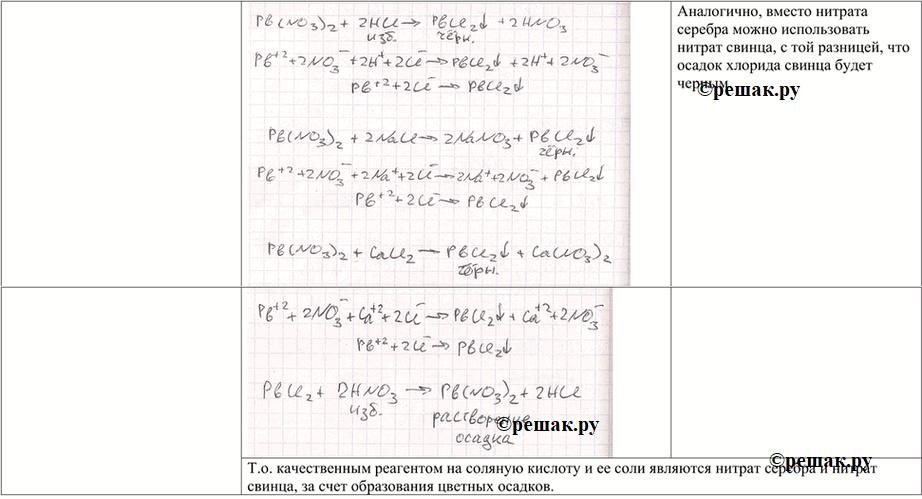 Pb(NO3)2 + 2HCl → PbCl2↓ + 2HNO3
изб. чёрн.
Pb+2+2NO3-+2H++2Cl-→PbCl2↓ +2H++2NO3-
Pb+2+2Cl-→ PbCl2↓
Pb(NO3)2 + 2NaCl→ 2NaNO3 + PbCl2↓
чёрн.
Pb+2+2NO3-+2Na++2Cl-→2Na++2NO3-+PbCl2↓
Pb+2+2Cl-→ PbCl2↓
Pb(NO3)2 + CaCl2 — PbCl2↓ + Ca(NO3)2
чёрн.
Аналогично, вместо нитрата
серебра можно использовать
нитрат свинца, с той разницей, что
осадок хлорида свинца будет
черным.
©решак.ру
Pb+2+2NO3-+Ca+2+2Cl-→PbCl2↓+Ca+2+2NO3-
Pb+2+2Cl-→ PbCl2↓
PbCl2 + 2HNO3 → Pb(NO3)2 + 2HCl
изб. растворение
осадка
©решак.ру
©решак.ру
Т.о. качественным реагентом на соляную кислоту и ее соли являются нитрат серебра и нитрат
свинца, за счет образования цветных осадков.